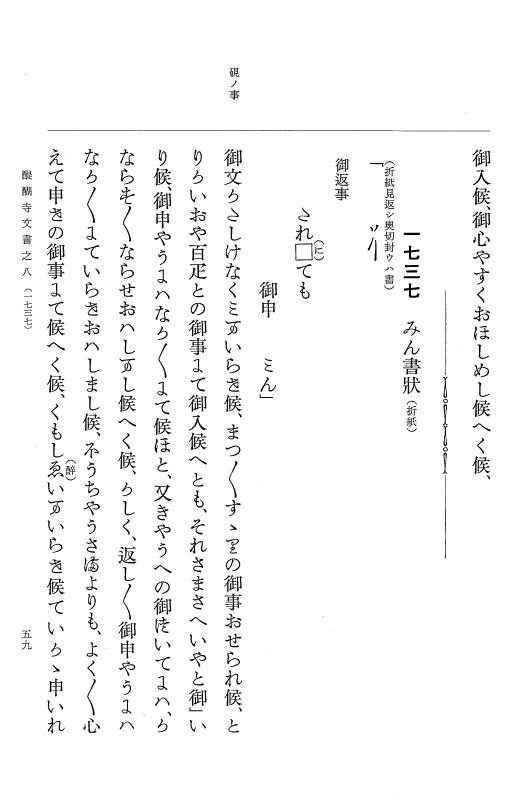 御入候、御心やすくおほしめし候へく候、
一七三七 みん書狀(折紙)
(折紙見返シ奧切封ウハ書)
「〆
御返事
され□(に)ても
御申 ミん」
硯ノ事
御文かたしけなくミまいらせ候、まつ〳〵すゝりの御事おせられ候、と
りかいおや百疋との御事にて御入候へとも、それさまさへいやと御」い
り候、御申やうにハなか〳〵にて候ほと、又きやうへの御徒いてにハ、か
ならも〳〵ならせおハしまし候へく候、かしく、返し〳〵御申やうにハ
なか〳〵にていらせおハしまし候、不うちやうさ満よりも、よく〳〵心
えて申せの御事にて候へく候、くもしゑ(醉)いまいらせ候ていかゝ申いれ
醍醐寺文書之八(一七三七)
五九